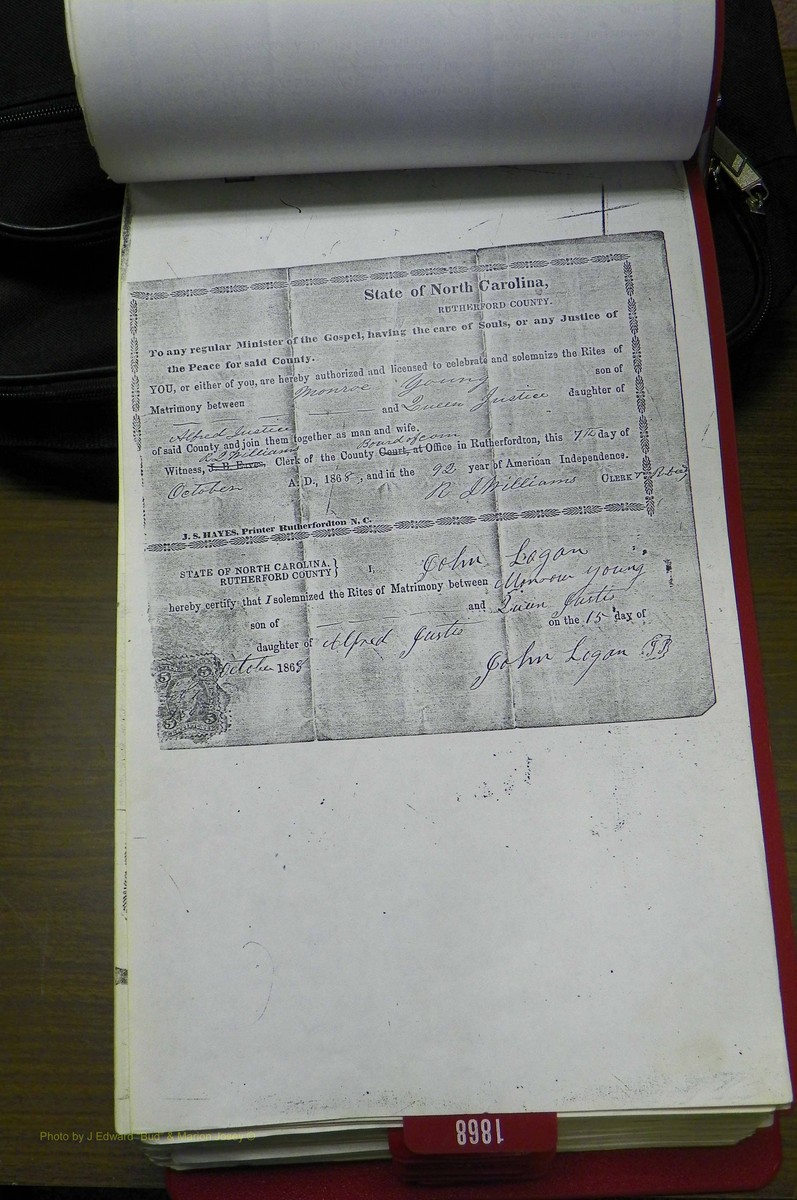 State of North Carolina,
RUTHERFORD COUNTY.
To any regular Minister of the Gospel, having the care of Souls, or any Justice of
the Peace for said County.
YOU, or either of you, are hereby authorized and licensed to celebrate and solemnize the Rites of
Matrimony between Monroe Young son of
and Queen Justice daughter of
Alfred Justice
of said County and join them together as man and wife.
R J Williams Board of com
Witness, J. B. Eaves, Clerk of the County Court, at Office in Rutherfordton, this 7th day of
October A. D., 1868, and in the 92 year of American Independence.
R J Williams CLERK
J. S. HAYES, Printer Rutherfordton N. C.
STATE OF NORTH CAROLINA.
RUTHERFORD COUNTY
I, John Logan
hereby certify that I solemnized the Rites of Matrimony between Monrow Young
son of and Queen Justis
daughter of Alfred Justis on the 15 day of
October 1868 John Logan
5 5
5 5
1868
Photo by J Edward "Bud" & Marion